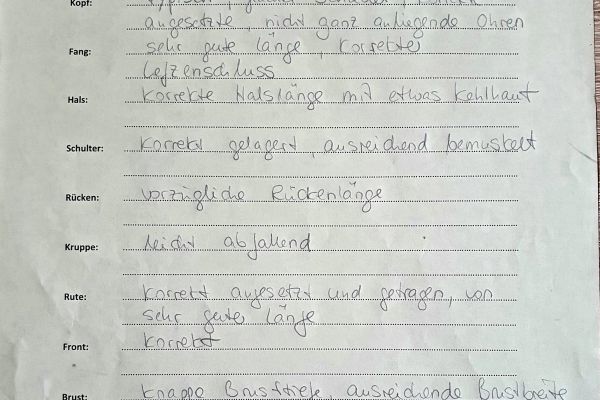 Kopf:
angesetzte, nicht ganz anliegende Ohren
Fang: sehr gute länge, korrekter
Lefzenschluss
Hals: korrekte Halslänge mit etwas Kehlhaut
Schulter: korrekt gelagert, ausreichend bemuskelt
Rücken: vorzügliche Rückenlänge
Kruppe: leicht abfallend
Rute: korrekt angesetzt und getragen, von
sehr guter länge
Front: korrekt
Brust: knappe Brusttiefe, ausreichende Brustbreite